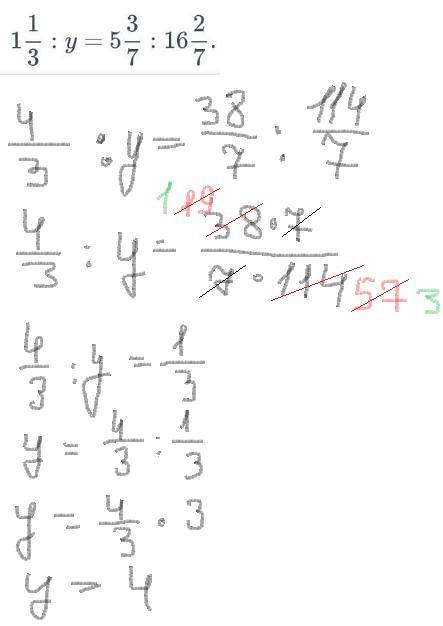 1 1/3 : y = 5 3/7 : 16 2/7.
4/3 : y = 38/7 : 114/7
1 19
4/3 : y = 38 · 7 / 7 · 114 57 3
4/3 : y = 1/3
y = 4/3 : 1/3
y = 4/3 · 3
y = 4